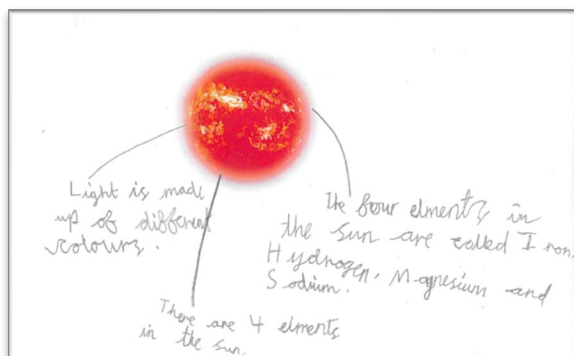 Light is made
up of different
colours.
The four elments in
the sun are called Iron,
Hydrogen, Magnesium and
Sodium.
There are 4 elments
in the sun.